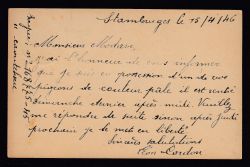 Stambruges le 15/4/46
Monsieur
J'ai l'honneur de vous informer
que je suis en possession d'un de vos
pigeons de couleur pâle il est rentré
dimanche dernier après midi. Veuillez
me répondre de suite sinon après Jeudi
prochain je le met en liberté
Sincères salutations
Léon